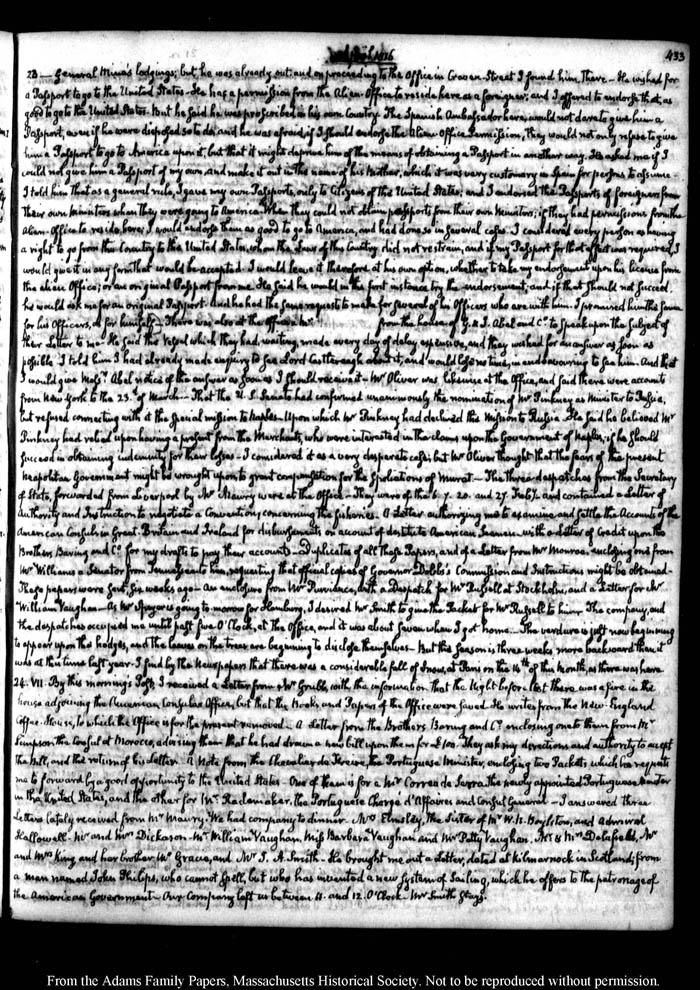 April 1816
433
23 — General Mina's lodgings; but he was already out: and on proceeding to the Office in Craven-Street I found him, There — He wished for
a Passport to go to the United States — He has a permission from the Alien-Office to reside here as a foreigner; and I offered to endorse that, as
good to go to the United States. But he said he was proscribed in his own Country. The Spanish Ambassador here, would not dare to give him a
Passport, even if he were disposed so to do, and he was afraid, if I should endorse the Alien-Office permission, they would not only refuse to give
him a Passport to go to America upon it, but that it might deprive him of the means of obtaining a Passport in another way. He asked me if I
could not give him a Passport of my own, and make it out in the name of his Mother, which it was very customary in Spain for persons to assume —
I told him that as a general rule, I gave my own Passports, only to Citizens of the United States, and I endorsed the Passports of foreigners from
their own Ministers when they were going to America. When they could not obtain passports from their own Ministers, if they had permissions from the
Alien-Office to reside here, I would endorse them as good to go to America, and had done so in several cases. I considered every person as having
a right to go from this Country to the United States, whom the Laws of this Country did not restrain, and if my Passport for that effect was required, I
would give it in any form that would be accepted. I would leave it therefore at his own option, whether to take my endorsement upon his license from
the alien Office; or an original Passport from me. He said he would in the first instance try the endorsement; and if that should not succeed,
he would ask me for an original Passport. And he had the same request to make for several of his Officers who are with him. I promised him the same
for his Officers, as for himself — There was also at the Office a Mr. from the house of G. & I. Abel and Co. to speak upon the subject of
their Letter to me. He said the Vessel which they had, waiting, made every day of delay expensive, and they wished for an answer as soon as
possible. I told him I had already made enquiry to see Lord Castlereagh about it, and would lose no time, in endeavouring to see him. And that
I would give Messrs. Abel notice of the answer as soon as I should receive it — Mr Oliver was likewise at the Office, and said there were accounts
from New York to the 23d. of March — That the U.S. Senate had confirmed unanimously the nomination of Mr Pinkney as Minister to Russia,
but refused connecting with it the special mission to Naples. Upon which Mr Pinkney had declined the Mission to Russia. He said he believed Mr
Pinkney had relied upon having a present from the Merchants, who were interested in the claims upon the Government of Naples, if he should
succeed in obtaining indemnity for their losses — I considered it as a very desperate case; but Mr Oliver thought that the fears of the present
Neapolitan Government might be wrought upon to grant compensation for the spoliations of Murat — The three despatches from the Secretary
of State, forwarded from Liverpool by Mr Maury were at the Office — They were of the 6. 7. 20. and 27 Feby. and contained a Letter of
Authority and Instruction to negotiate a Convention, concerning the fisheries. A Letter authorizing me to examine and settle the Accounts of the
American Consuls in Great-Britain and Ireland for disbursements on account of destitute American Seamen, with a Letter of Credit upon the
Brothers Baring and Co. for my drafts to pay their accounts — Duplicates of all those Papers, and of a Letter from Mr Monroe, enclosing one from
Mr Williams a Senator from Tennessee to him, requesting that official copies of Governor Dobbs's Commission and Instructions might be obtained —
These papers were sent, six weeks ago — An enclosure from Mr Purviance, with a Despatch for Mr Russell at Stockholm, and a Letter for Mr
William Vaughan — As Mr Speyer is going to morrow for Hamburg, I desired Mr Smith to give the Packet for Mr Russell to him. The company, and
the despatches occupied me until past five O'Clock, at the Office, and it was about seven when I got home. — The verdure is just now beginning
to appear upon the hedges, and the leaves on the trees are beginning to disclose themselves — But the season is three weeks more backward than it
was at this time last year. I find by the Newspapers that there was a considerable fall of Snow, at Paris on the 14th. of this month, as there was here.
24. VII. By this morning's Post, I received a Letter from Mr Grubb, with the information that the Night before last there was a fire in the
house adjoining the American Consular Office, but that the Books and Papers of the Office were saved. He writes from the New-England
Coffee-House, to which the Office is for the present removed — A Letter from the Brothers Baring and Co. enclosing one to them from Mr
Simpson the Consul at Morocco, advising them that he had drawn a new bill upon them for £100. They ask my directions and authority to accept
the Bill, and the return of his Letter. A Note from the Chevalier de Freire, the Portuguese Minister, enclosing two Packets which he requests
me to forward by a good opportunity to the United States — One of them is for a Mr Correa de Serra, the newly appointed Portuguese Minister
in the United States, and the other for Mr Rademaker, the Portuguese Chargé d'Affaires and Consul General — I answered three
Letters lately received from Mr Maury. We had company to dinner. Mrs Elmsley, the Sister of Mr W. N. Boylston, and Admiral
Hallowell — Mr and Mrs Dickason — Mr William Vaughan, Miss Barbara Vaughan and Mr Petty Vaughan. Mr & Mrs Delafield, Mr
and Mrs King and her brother Mr Gracie, and Mr J. A. Smith — He brought me out a Letter, dated at Kilmarnock in Scotland, from
a man named John Philips, who cannot spell, but who has invented a new System of Sailing, which he offers to the patronage of
the American Government — Our Company left us between 11. and 12. O'Clock. Mr Smith stays.
From the Adams Family Papers, Massachusetts Historical Society. Not to be reproduced without permission.